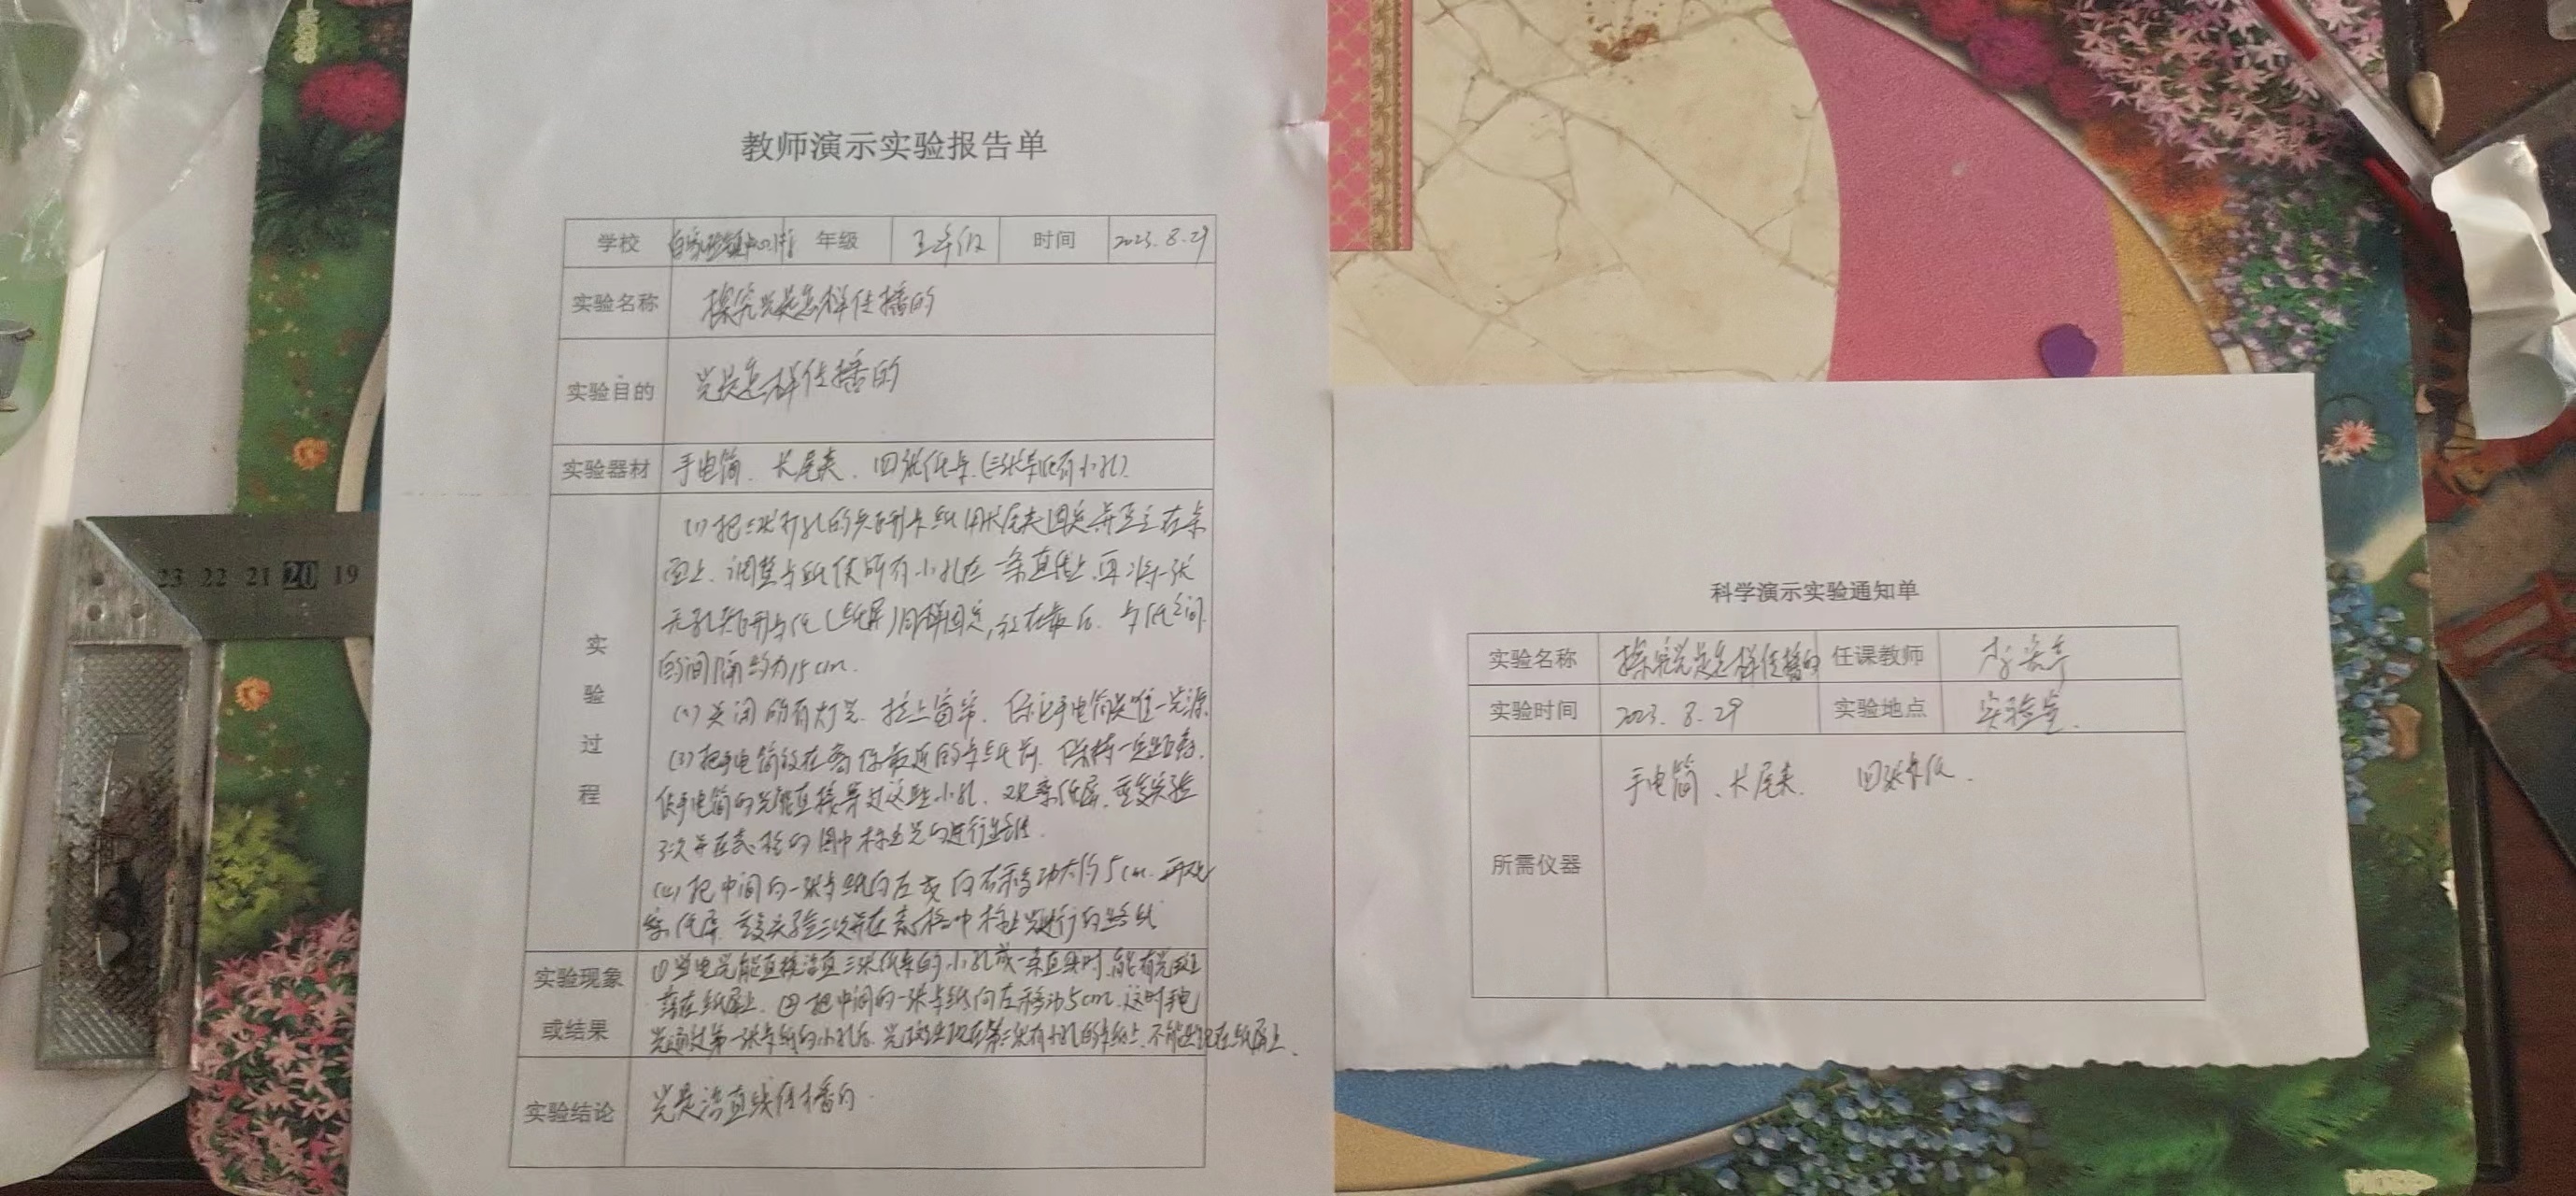 教师演示实验报告单
学校 年级 五年级 时间 2023.8.29
实验名称 探究光是怎样传播的
实验目的 光是怎样传播的
实验器材 手电筒、长尾夹、四张纸卡(三张卡纸有小孔)
实验过程
(1)把三张打孔的矩形卡纸用长尾夹固定并直立在桌
面上、调整卡纸使所有小孔在一条直线上,再将一张
无孔矩形卡纸(纸屏)同样固定,放在最后、卡纸之间
的间隔约为15cm.
(2)关闭所有灯光、拉上窗帘、保证手电筒是唯一光源.
(3)把手电筒放在离你最近的卡纸前、保持一定距离.
使手电筒的光能直接穿过这些小孔、观察纸屏、重复实验
3次并在表格的图中标出光的进行路线.
(4)把中间的一张卡纸向左或向右移动大约5cm.再观
察纸屏、重复实验三次并在表格中标出光进行的路线
实验现象或结果
①当电光能直接沿直三张纸卡的小孔成一条直线时、能有光斑
落在纸屏上、②把中间的一张卡纸向左移动5cm、这时手电
光通过第一张卡纸的小孔后、光斑出现在第二张有小孔的卡纸上、不能出现在纸屏上.
实验结论 光是沿直线传播的.
科学演示实验通知单
实验名称 探究光是怎样传播的 任课教师
实验时间 2023.8.29 实验地点 实验室.
所需仪器 手电筒、长尾夹、四张卡纸.
19 20 21 22 23